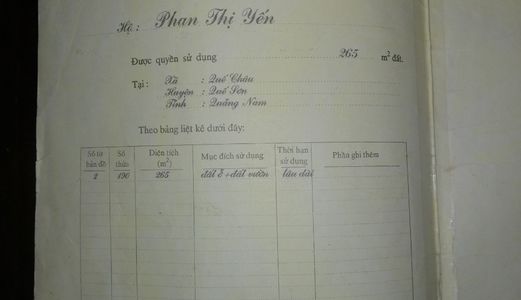 Hộ: Phan Thị Yến
Được quyền sử dụng 265 m² đất.
Tại: Xã : Quế Châu
Huyện : Quế Sơn
Tỉnh : Quảng Nam
Theo bảng liệt kê dưới đây:
Số tờ bản đồ Số thửa Diện tích (m²) Mục đích sử dụng Thời hạn sử dụng Phần ghi thêm
2 190 265 đất ở + đất vườn lâu dài